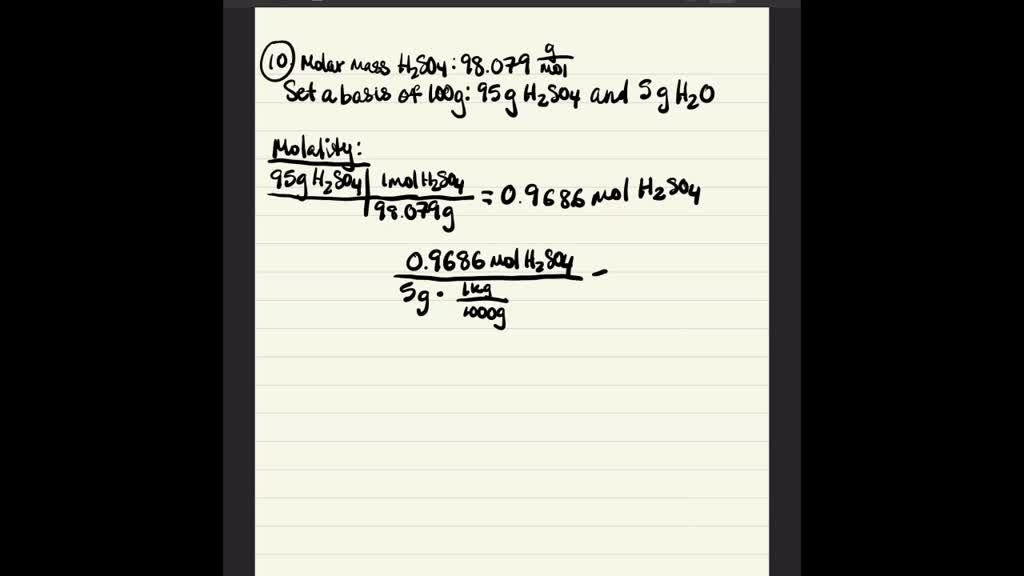 10 Molar mass H₂SO₄: 98.079 g/mol
Set a basis of 100g: 95g H₂SO₄ and 5g H₂O
Molality:
95g H₂SO₄ | 1mol H₂SO₄
98.079g
= 0.9686 mol H₂SO₄
0.9686 mol H₂SO₄
5g · 1kg/1000g
-